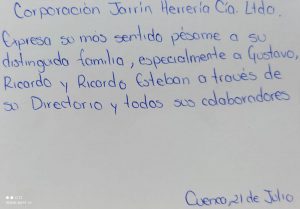 Corporación Jarrín Herrería Cía. Ltda.
Expresa su mas sentido pésame a su
distinguida familia, especialmente a Gustavo,
Ricardo y Ricardo Esteban a través de
su Directorio y todos sus colaboradores
Cuenca, 21 de Julio